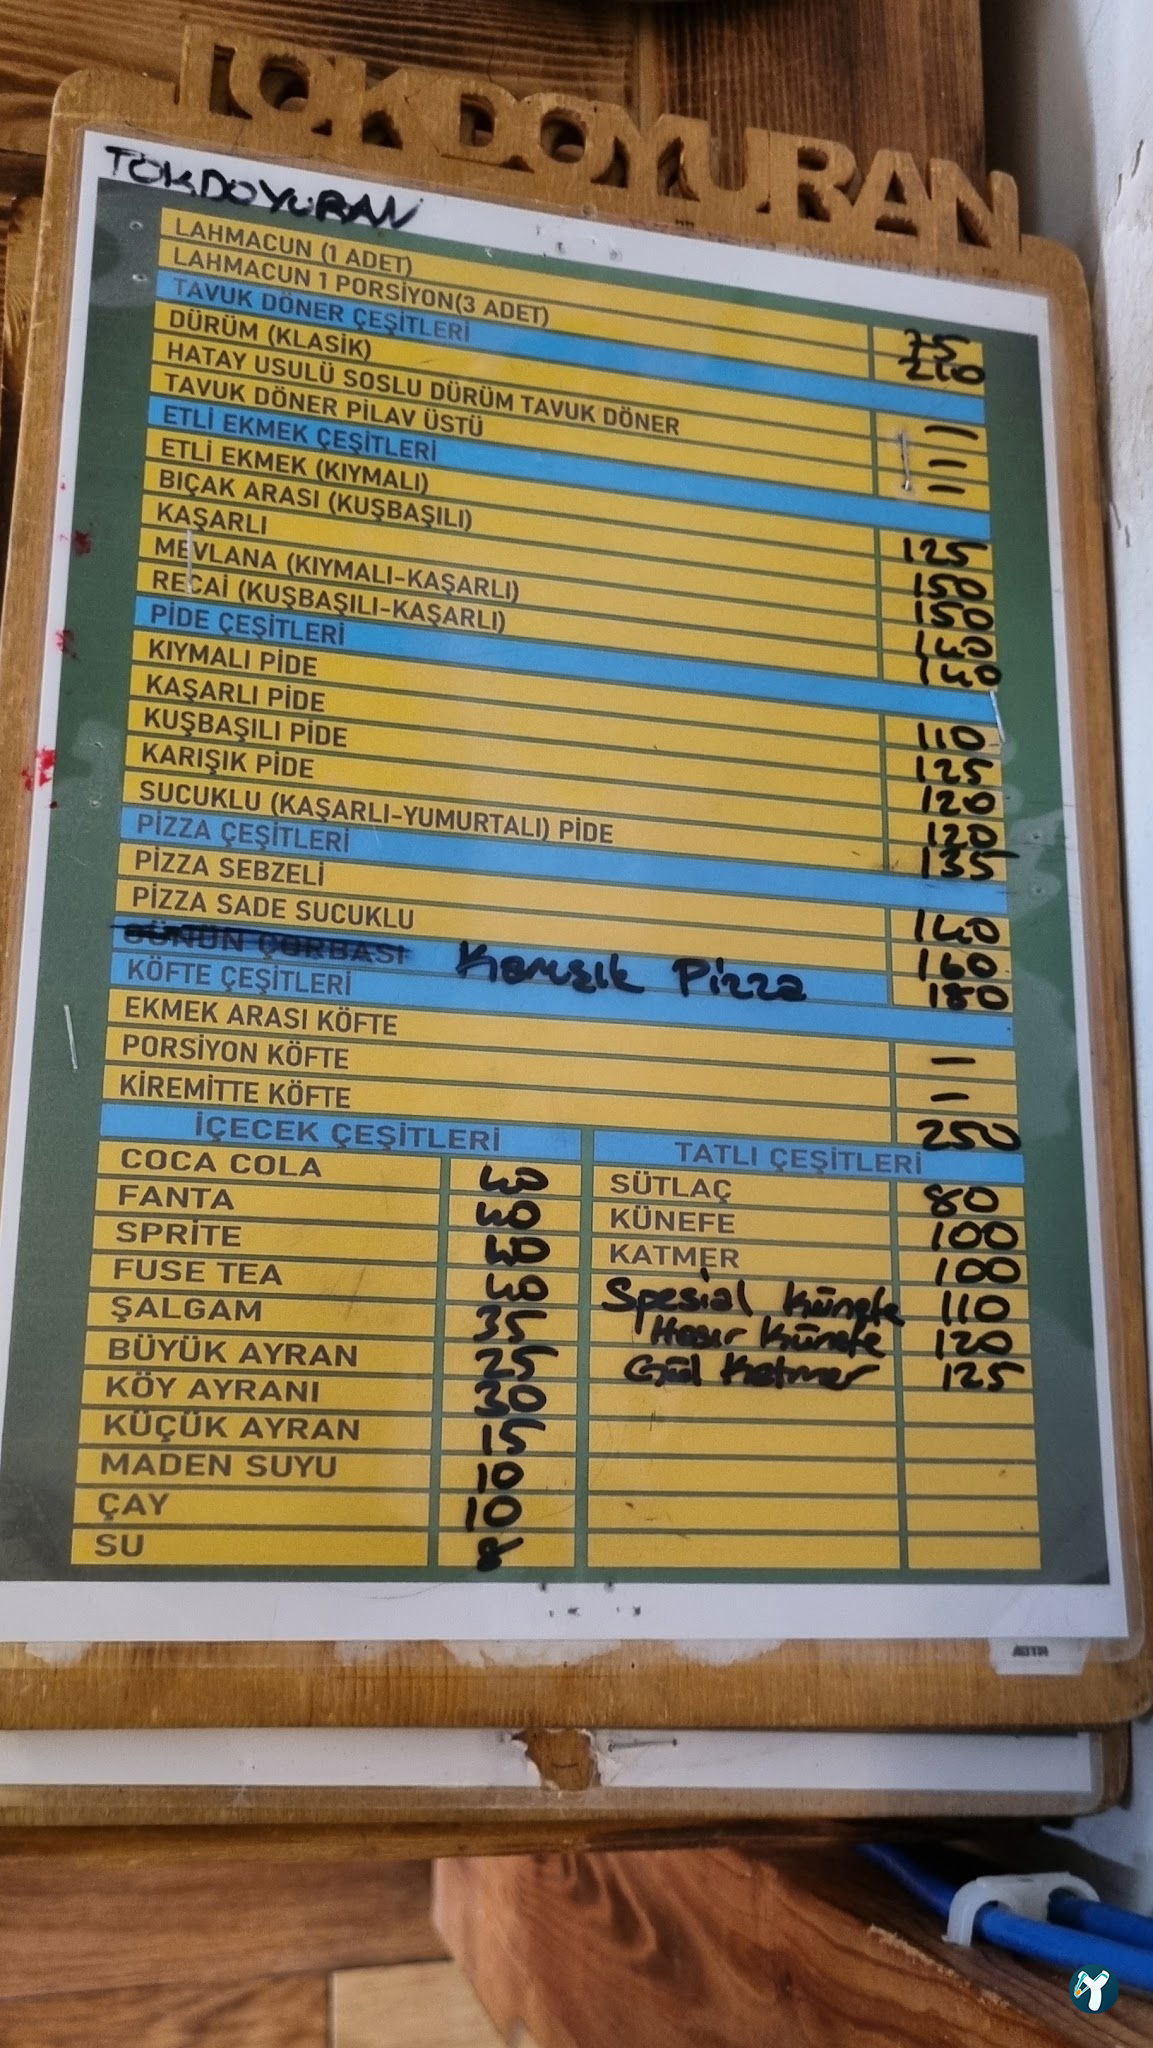 TOKDOYURAN
TOKDOYURAN
LAHMACUN (1 ADET) 75
LAHMACUN 1 PORSİYON(3 ADET) 210
TAVUK DÖNER ÇEŞİTLERİ
DÜRÜM (KLASİK) —
HATAY USULÜ SOSLU DÜRÜM TAVUK DÖNER —
TAVUK DÖNER PİLAV ÜSTÜ —
ETLİ EKMEK ÇEŞİTLERİ
ETLİ EKMEK (KIYMALI) 125
BIÇAK ARASI (KUŞBAŞILI) 150
KAŞARLI 150
MEVLANA (KIYMALI-KAŞARLI) 140
RECAİ (KUŞBAŞILI-KAŞARLI) 140
PİDE ÇEŞİTLERİ
KIYMALI PİDE 110
KAŞARLI PİDE 125
KUŞBAŞILI PİDE 120
KARIŞIK PİDE 120
SUCUKLU (KAŞARLI-YUMURTALI) PİDE 135
PİZZA ÇEŞİTLERİ
PİZZA SEBZELİ 140
PİZZA SADE SUCUKLU 160
GÜNÜN ÇORBASI Karışık Pizza 180
KÖFTE ÇEŞİTLERİ
EKMEK ARASI KÖFTE —
PORSİYON KÖFTE —
KİREMİTTE KÖFTE 250
İÇECEK ÇEŞİTLERİ
COCA COLA 40
FANTA 40
SPRİTE 40
FUSE TEA 40
ŞALGAM 35
BÜYÜK AYRAN 25
KÖY AYRANI 30
KÜÇÜK AYRAN 15
MADEN SUYU 10
ÇAY 10
SU 8
TATLI ÇEŞİTLERİ
SÜTLAÇ 80
KÜNEFE 100
KATMER 100
Spesial Künefe 110
Hasır Künefe 120
Gül Katmer 125